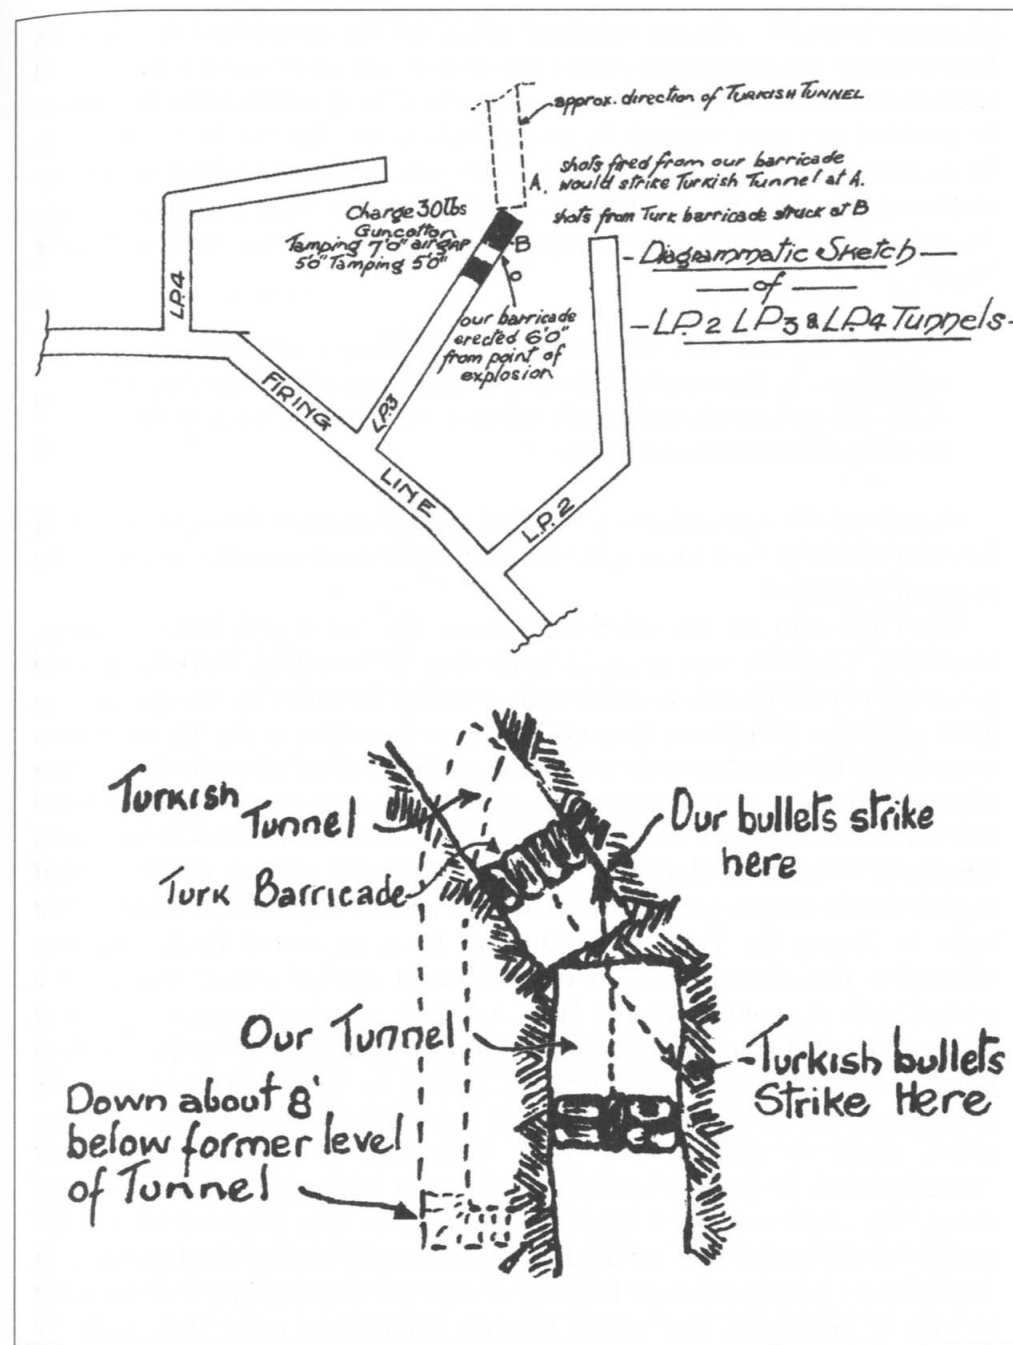 approx. direction of TURKISH TUNNEL
A.
shots fired from our barricade
would strike Turkish Tunnel at A.
shots from Turk barricade struck at B
Charge 30lbs
Guncotton
Tamping 7'0" airgap
5'0" Tamping 5'0"
B
our barricade
erected 6'0"
from point of
explosion
- Diagrammatic Sketch -
- of -
- L.P. 2 L.P. 3 & L.P. 4 Tunnels -
L.P. 4
FIRING
LINE
L.P. 3
L.P. 2
Turkish
Tunnel
Turk Barricade
Our bullets strike
here
Our Tunnel
Turkish bullets
Strike Here
Down about 8'
below former level
of Tunnel